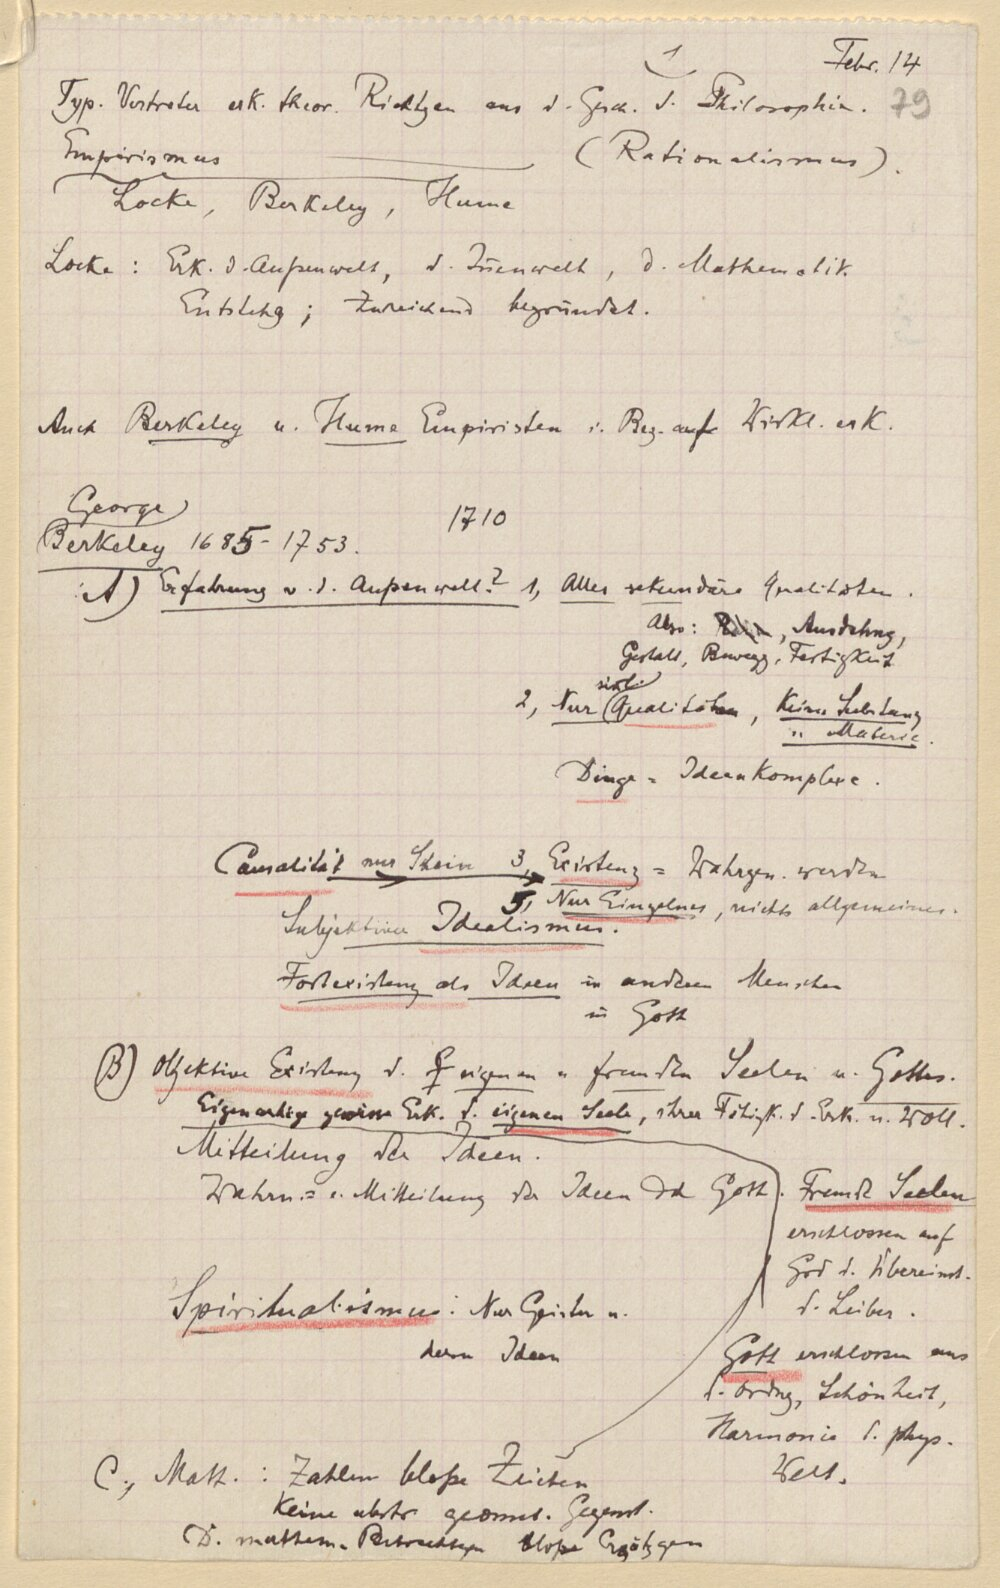 1
Febr. 14
Typ. Vertreter erk. theor. Richtgen aus d. Gesch. d. Philosophie. 79
Empirismus (Rationalismus).
Locke, Berkeley, Hume
Locke: Erk. d. Außenwelt, d. Innenwelt, d. Mathematik.
Entstehg; zureichend begründet.
Auch Berkeley u. Hume Empiristen i. Bez. auf Wirkl. erk.
George
Berkeley 1685-1753. 1710
A) Erfahrung v. d. Außenwelt? 1, Alles sekundäre Qualitäten.
Also: , Ausdehng,
Gestalt, Bewegg, Festigkeit
2, Nur sinnl. Qualitäten, Keine Substanz
u Materie.
Dinge = Ideenkomplexe.
Causalität nur Schein 3, Existenz = Wahrgen. werden
5, Nur Einzelnes, nichts allgemeines.
Subjektiver Idealismus.
Fortexistenz als Ideen in anderen Menschen
in Gott
B) Objektive Existenz d. eigenen u fremden Seelen u. Gottes.
Eigenartige gewisse Erk. d. eigenen Seele, ihrer Fähigk. d. Erk. u. Woll.
Mitteilung der Ideen.
Wahrn. = e. Mitteilung der Ideen dch Gott. Fremde Seelen
erschlossen auf
Grd d. Übereinst.
d. Leiber.
Spiritualismus: Nur Geister u.
deren Ideen
Gott erschlossen aus
d. Ordng, Schönheit,
Harmonie d. phys.
Welt.
C., Math.: Zahlen bloße Zeichen
Keine abstr geomet. Gegenst.
D. mathem. Betrachtgen bloße Ergötzgen